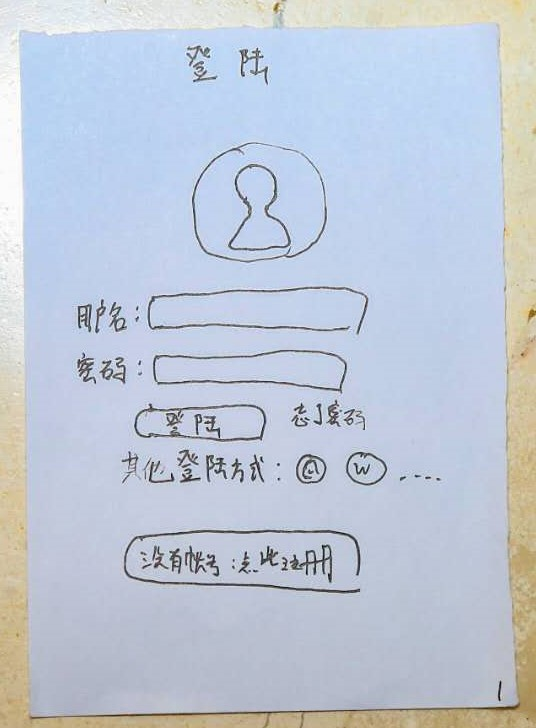 登陆
用户名:
密码:
登陆 忘了密码
其他登陆方式: W ....
没有帐号:点此注册
1